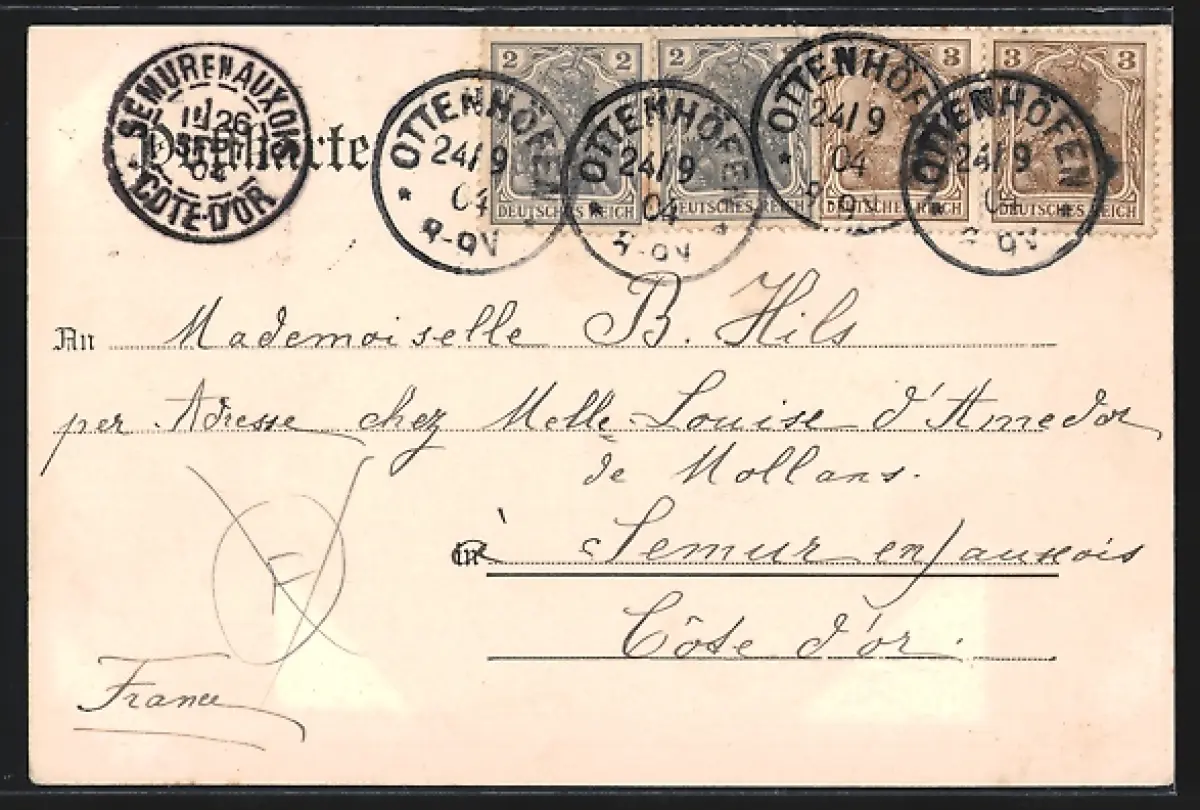 SEMUR EN AUXOIS
11 26
SEPT
04
COTE-D'OR
Postkarte
2 2
DEUTSCHES REICH
2
DEUTSCHES REICH
3
DEUTSCHES REICH
3 3
DEUTSCHES REICH
OTTENHÖFEN
24/9
04
8-9V
OTTENHÖFEN
24/9
04
8-9V
OTTENHÖFEN
24/9
04
OTTENHÖFEN
24/9
04
8-9V
An Mademoiselle B. Hils
per Adresse chez Melle Louise d'Amedor
de Mollans.
in à Semur en/auxois
Côte d'or.
F
France